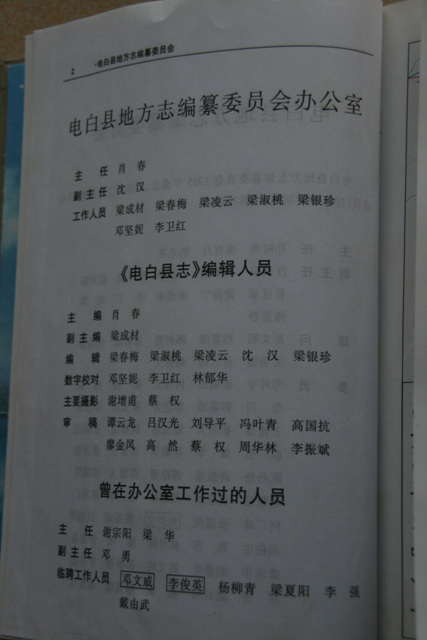 2 ·电白县地方志编纂委员会
电白县地方志编纂委员会办公室
主 任 肖 春
副主任 沈 汉
工作人员 梁成材 梁春梅 梁凌云 梁淑桃 梁银珍
邓坚妮 李卫红
《电白县志》编辑人员
主 编 肖 春
副主编 梁成材
编 辑 梁春梅 梁淑桃 梁凌云 沈 汉 梁银珍
数字校对 邓坚妮 李卫红 林郁华
主要摄影 谢增甫 蔡 权
审 稿 谭云龙 吕汉光 刘导平 冯叶青 高国抗
廖金风 高 然 蔡 权 周华林 李振斌
曾在办公室工作过的人员
主 任 谢宗阳 梁 华
副主任 邓 勇
临聘工作人员 邓文威 李俊英 杨柳青 梁夏阳 李 强
戴由武